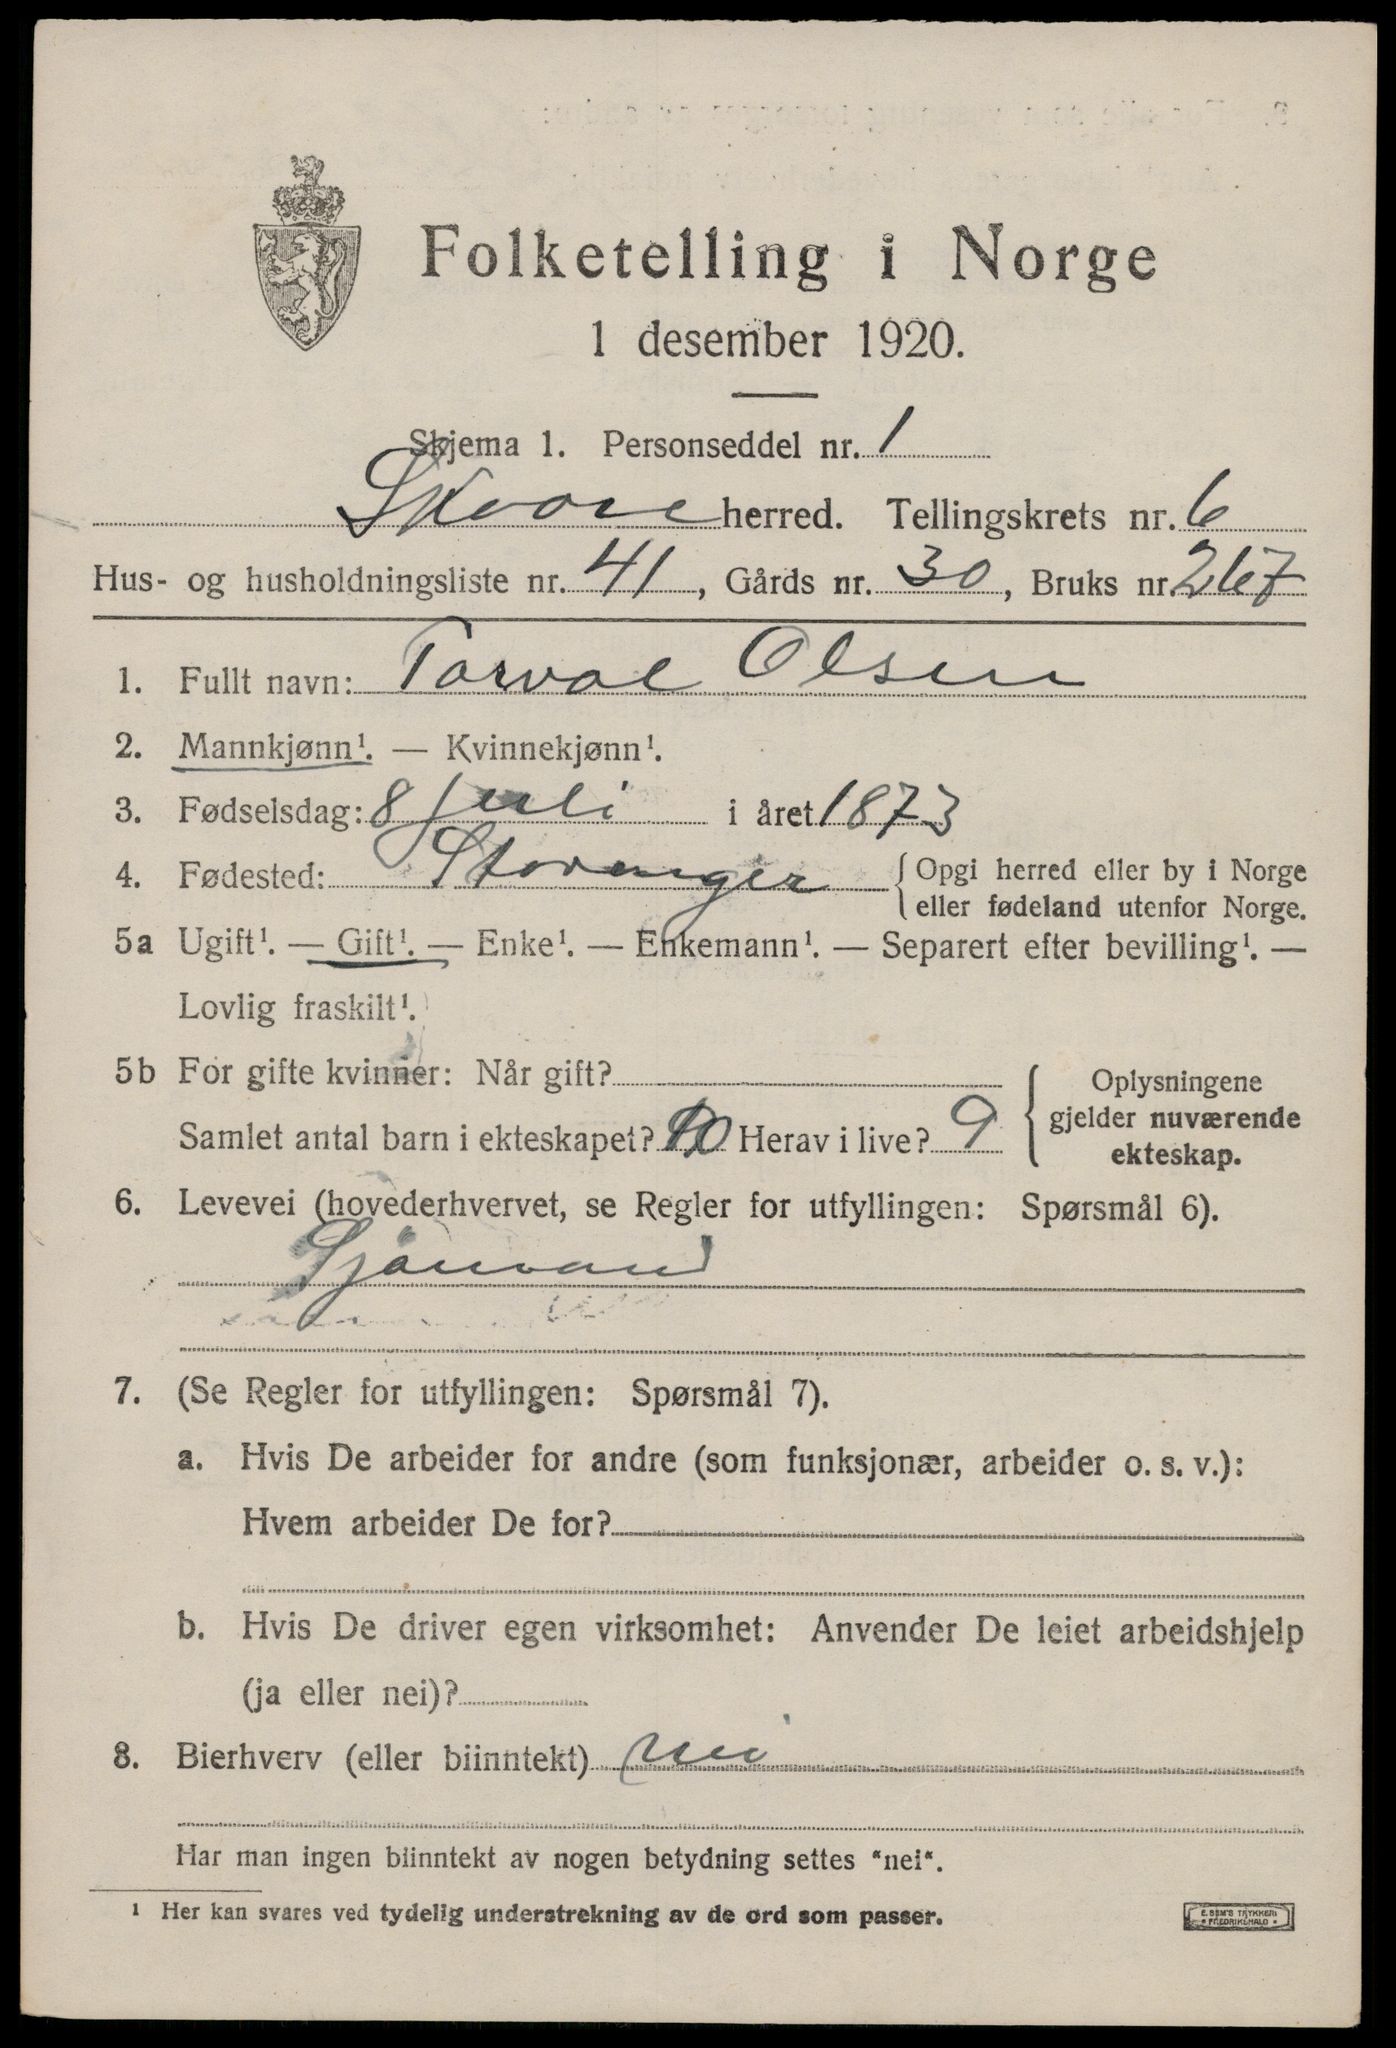 Folketelling i Norge
1 desember 1920.
Skjema 1. Personseddel nr. 1
Skaare herred. Tellingskrets nr. 6
Hus- og husholdningsliste nr. 41, Gårds nr. 30, Bruks nr. 267
1. Fullt navn: Torval Olsen
2. Mannkjønn¹. — Kvinnekjønn¹.
3. Fødselsdag: 8 juli i året 1873
4. Fødested: Stavanger { Opgi herred eller by i Norge
eller fødeland utenfor Norge.
5a Ugift¹. — Gift¹. — Enke¹. — Enkemann¹. — Separert efter bevilling¹. —
Lovlig fraskilt¹.
5b For gifte kvinner: Når gift?
Samlet antal barn i ekteskapet? 10 Herav i live? 9
{ Oplysningene
gjelder nuværende
ekteskap.
6. Levevei (hovederhvervet, se Regler for utfyllingen: Spørsmål 6).
Sjömand
7. (Se Regler for utfyllingen: Spørsmål 7).
a. Hvis De arbeider for andre (som funksjonær, arbeider o. s. v.):
Hvem arbeider De for?
b. Hvis De driver egen virksomhet: Anvender De leiet arbeidshjelp
(ja eller nei)?
8. Bierhverv (eller biinntekt) nei
Har man ingen biinntekt av nogen betydning settes "nei".
¹ Her kan svares ved tydelig understrekning av de ord som passer.
E. SEM'S TRYKKERI
• FREDRIKSHALD •